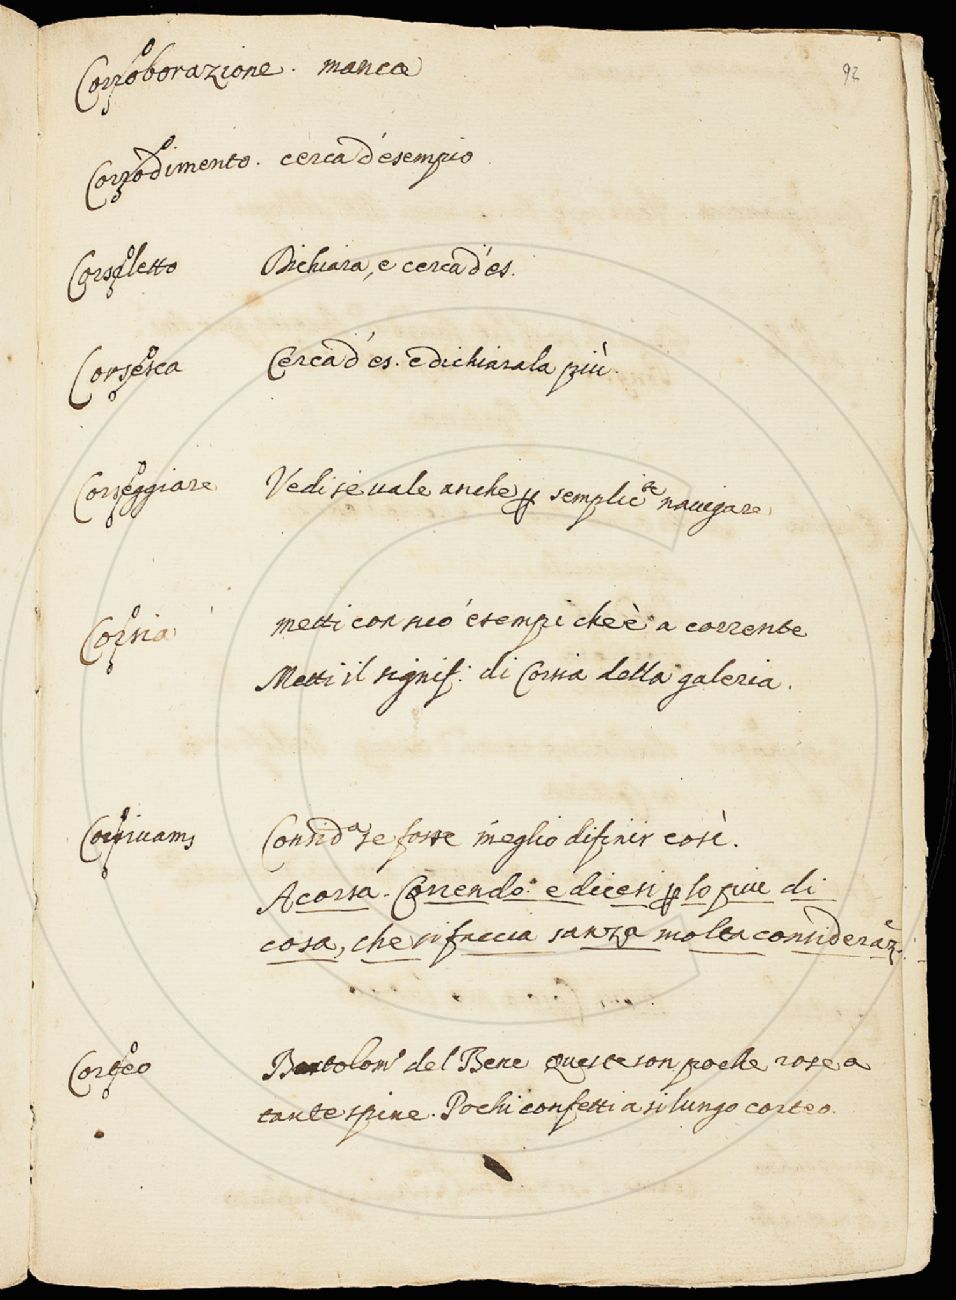 92
Corroborazione. manca
Corrodimento. cerca d'esempio
Corsaletto Dichiara, e cerca d'es.
Corsesca Cerca d'es. e dichiarala più.
Corseggiare Vedi se vale anche ꝑ semplicte navigare
Corsia metti con suo' esempi che è a corrente
Metti il signif. di Corsia della galeria.
Consida se fosse meglio difinir così.
A corsa. Correndo. e dicesi ꝑ lo piu di
cosa, che si faccia sanza molta consideraze.
Corteo Bartolom' del Bene Queste son poche rose a
tante spine. Pochi confetti a sì lungo corteo.